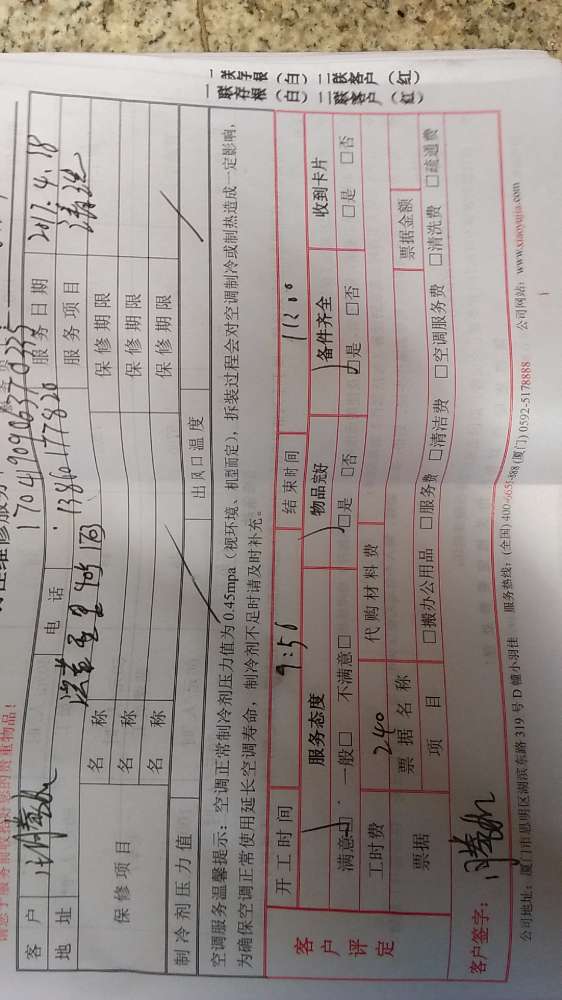 一联存根（白）二联客户（红）
一联存根（白）二联客户（红）
请您于服务前收拾好您的贵重物品！
维修服务
170419090637033
客户 电话 13860177820 服务日期 2017.4.18
地址 服务项目 清洗
保修项目 名称 保修期限
名称 保修期限
名称 保修期限
制冷剂压力值 出风口温度
空调服务温馨提示：空调正常制冷剂压力值为0.45mpa（视环境、机型而定），拆装过程会对空调制冷或制热造成一定影响，
为确保空调正常使用延长空调寿命，制冷剂不足时请及时补充。
客户评定 开工时间 9:56 结束时间 11:20
服务态度 物品完好 备件齐全 收到卡片
满意□ 一般□ 不满意□ □是 □否 □是 □否 □是 □否
工时费 240 代购材料费
票据 票据名称 票据金额
项目 □搬办公用品 □服务费 □清洁费 □空调服务费 □清洗费 □疏通费
客户签字：
公司地址：厦门市思明区湖滨东路319号D幢小羽佳 服务热线：(全国) 400-6655-888 (厦门) 0592-5178888 公司网站：www.xiaoyujia.com